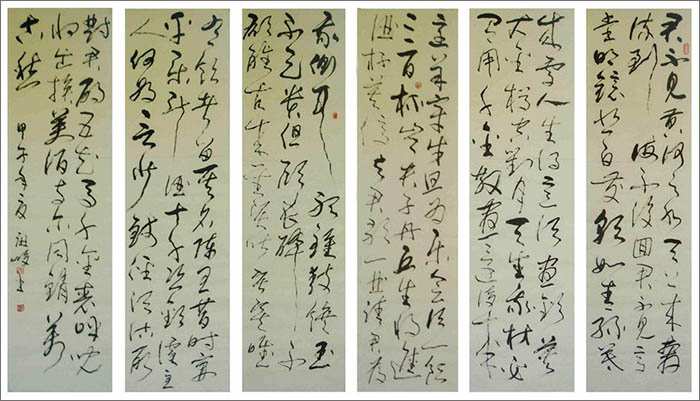 君不見黃河之水天上來奔
流到海不復回君不見高
堂明鏡悲白髮朝如青絲暮
成雪人生得意須盡歡莫
使金樽空對月天生我材必
有用千金散盡還復來
烹羊宰牛且為樂會須一飲
三百杯岑夫子丹丘生將進
酒杯莫停與君歌一曲請君為
我傾耳聽鐘鼓饌玉
不足貴但願長醉不
願醒古來聖賢皆寂寞惟
有飲者留其名陳王昔時宴
平樂斗酒十千恣歡謔主
人何為言少錢徑須沽取
對君酌五花馬千金裘呼兒
將出換美酒與爾同銷萬
古愁 甲午年夏